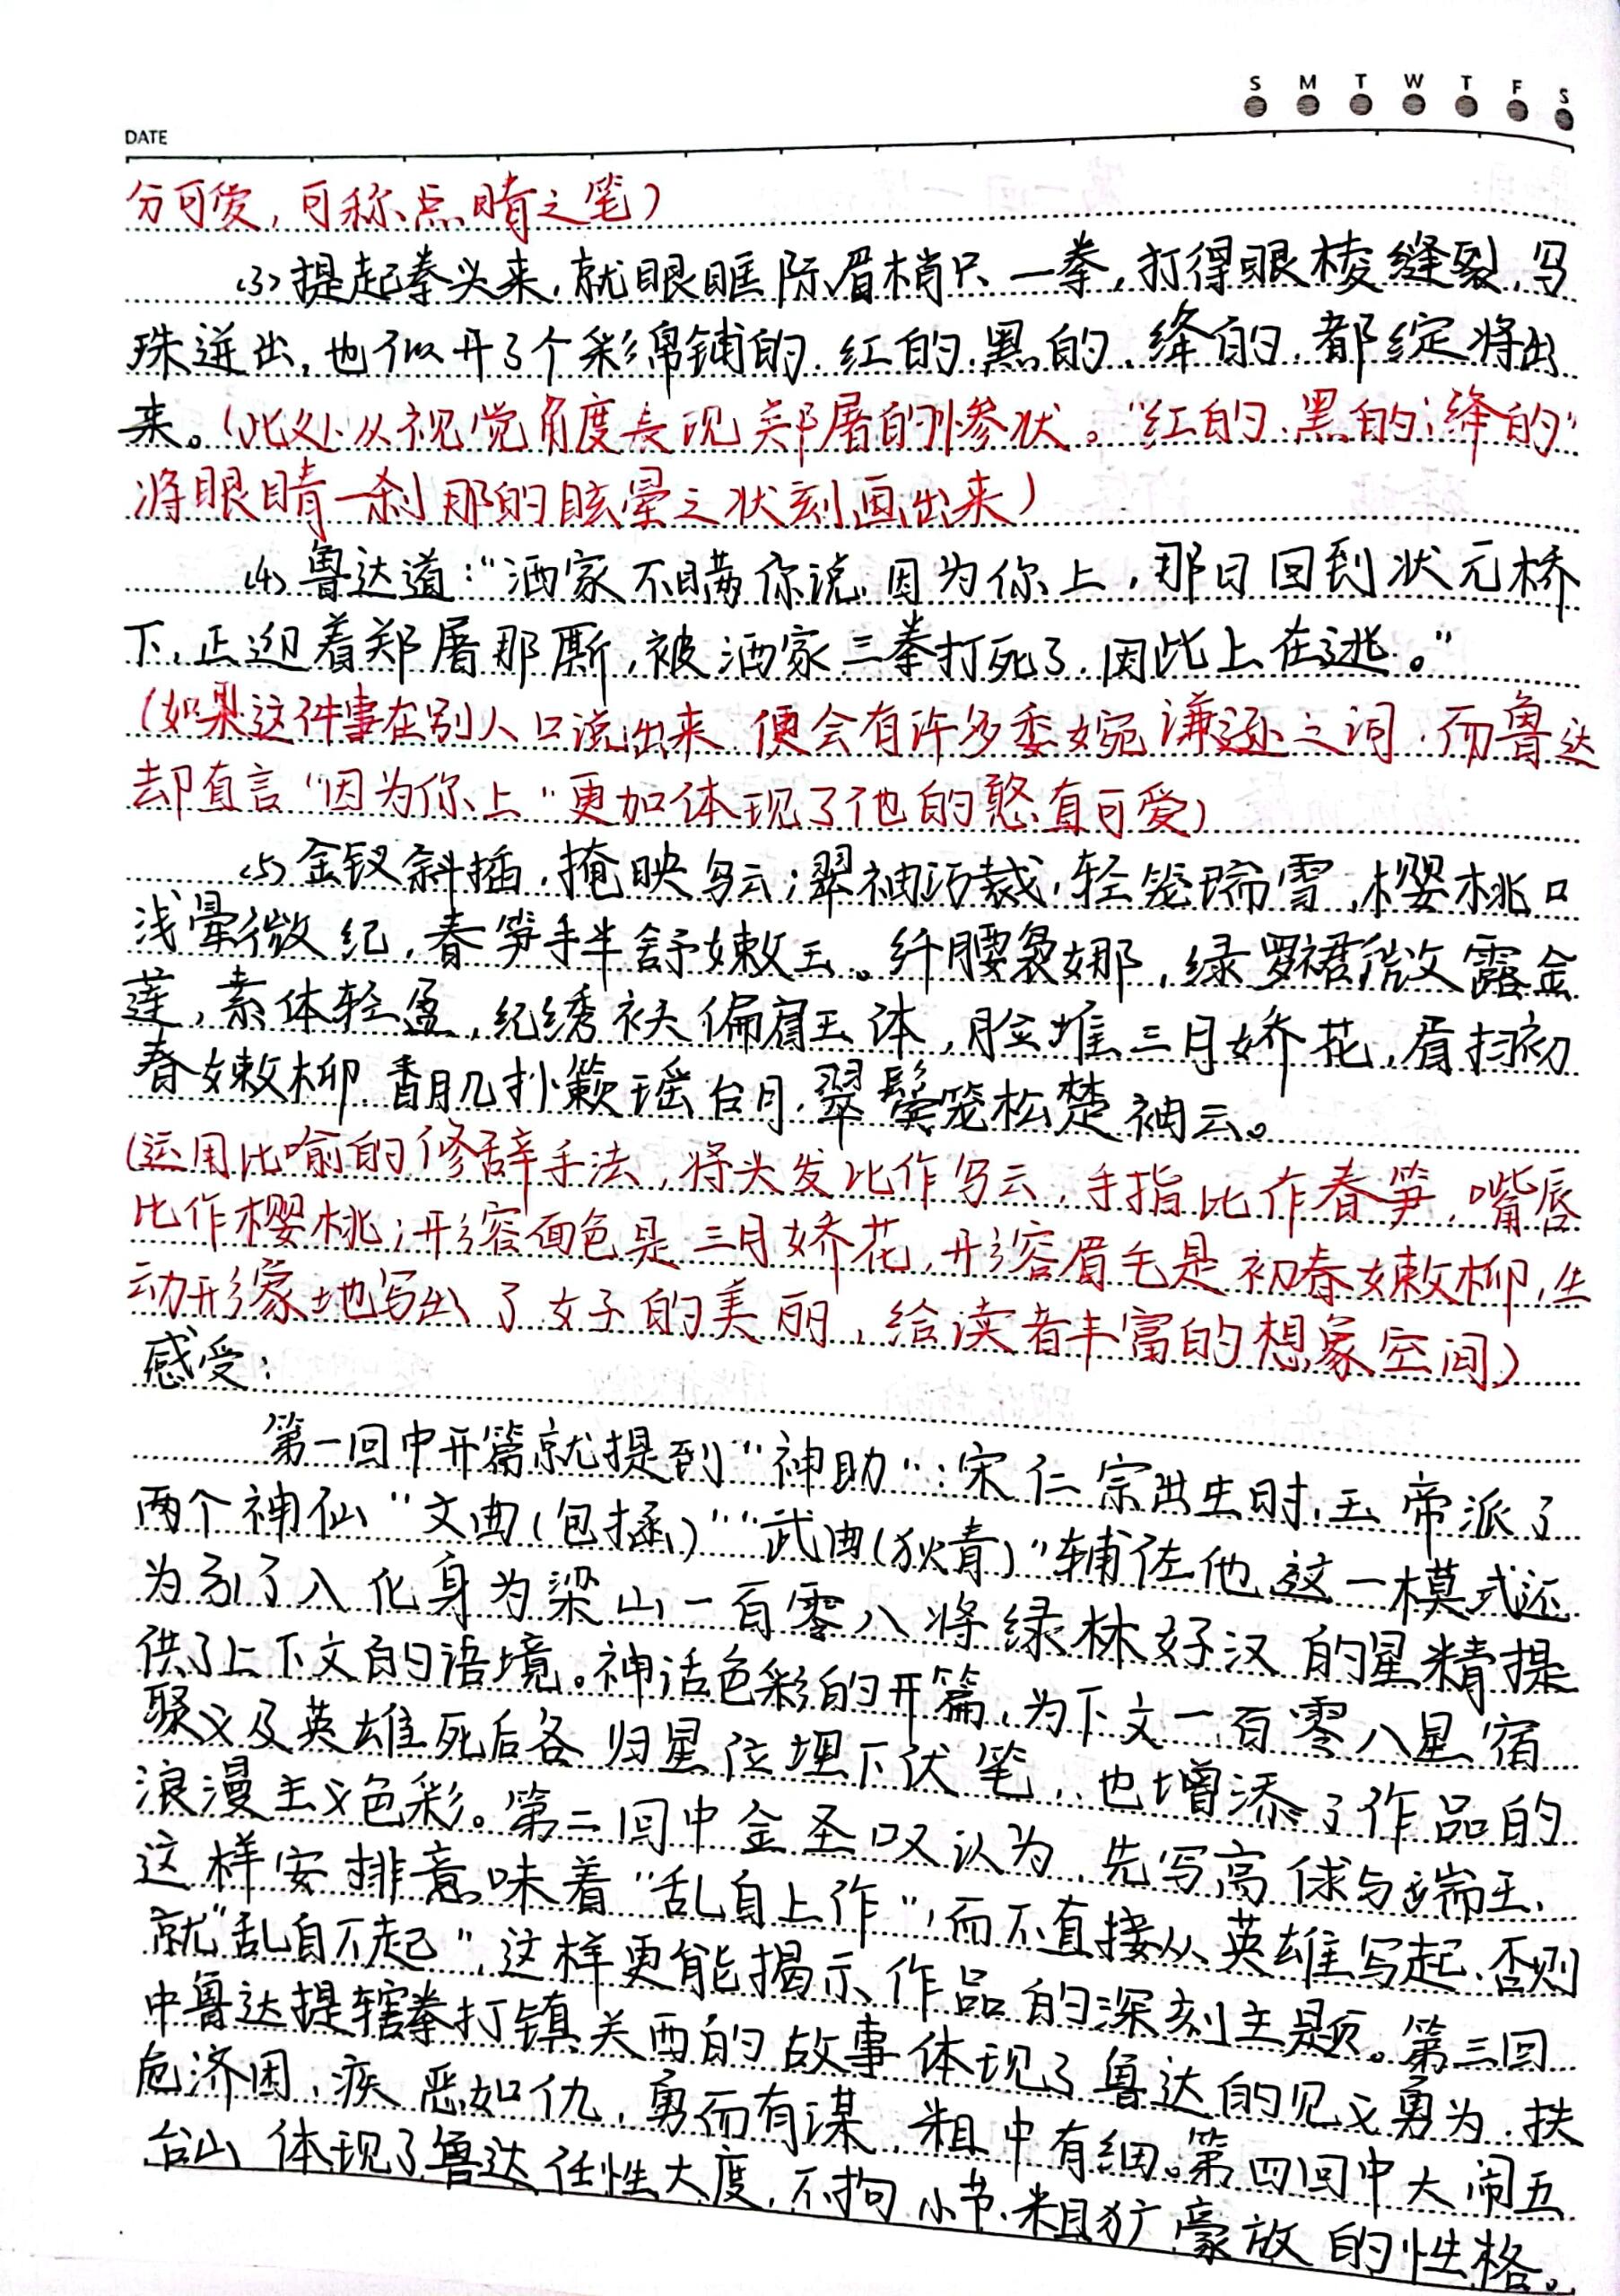 S M T W T F S
DATE
分可爱,可称点睛之笔)
(3)提起拳头来,就眼眶际眉梢只一拳,打得眼棱缝裂,乌
珠迸出,也似开了个彩帛铺的,红的、黑的、绛的,都绽将出
来。(此处从视觉角度表现郑屠的惨状。“红的、黑的、绛的”
将眼睛一刹那的眩晕之状刻画出来)
(4)鲁达道:“洒家不瞒你说,因为你上,那日回到状元桥
下,正迎着郑屠那厮,被洒家三拳打死了,因此上在逃。”
(如果这件事在别人口说出来 便会有许多委婉谦逊之词,而鲁达
却直言“因为你上”更加体现了他的憨直可爱)
(5)金钗斜插,掩映乌云;翠袖巧裁,轻笼瑞雪,樱桃口
浅晕微红,春笋手半舒嫩玉。纤腰袅娜,绿罗裙微露金
莲,素体轻盈,红绣袄偏宜玉体,脸堆三月娇花,眉扫初
春嫩柳 香肌扑簌瑶台月,翠鬓笼松楚袖云。
(运用比喻的修辞手法,将头发比作乌云,手指比作春笋,嘴唇
比作樱桃;形容面色是三月娇花,形容眉毛是初春嫩柳,生
动形象地写出了女子的美丽,给读者丰富的想象空间)
感受:
第一回中开篇就提到“神助”:宋仁宗出生时,玉帝派了
两个神仙“文曲(包拯)”“武曲(狄青)”辅佐他 这一模式还
为引了入化身为梁山一百零八将绿林好汉的星精提
供了上下文的语境。神话色彩的开篇,为下文一百零八星宿
聚义及英雄死后各归星位埋下伏笔,也增添了作品的
浪漫主义色彩。第二回中金圣叹认为,先写高俅与端王,
这样安排意味着“乱自上作”,而不直接从英雄写起,否则
就“乱自下起”,这样更能揭示作品的深刻主题。第三回
中鲁达提辖拳打镇关西的故事体现了鲁达的见义勇为,扶
危济困,疾恶如仇,勇而有谋,粗中有细。第四回中大闹五
台山 体现了鲁达任性大度,不拘小节,粗犷豪放的性格。